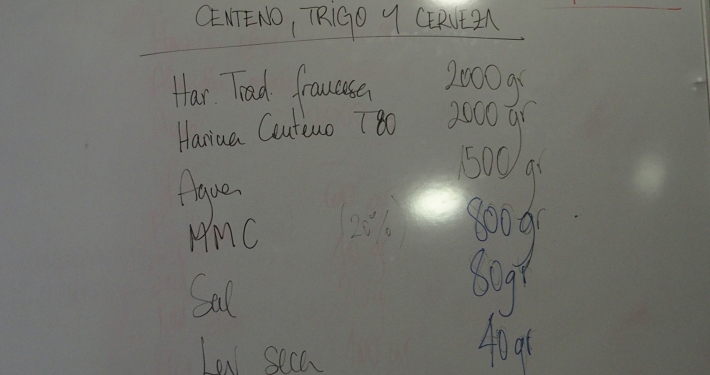 CENTENO, TRIGO Y CERVEZA
Har. Trad. francesa 2000 gr
Harina Centeno T80 2000 gr
Agua 1500 gr
MMC (20%) 800 gr
Sal 80 gr
Lev seca 40 gr